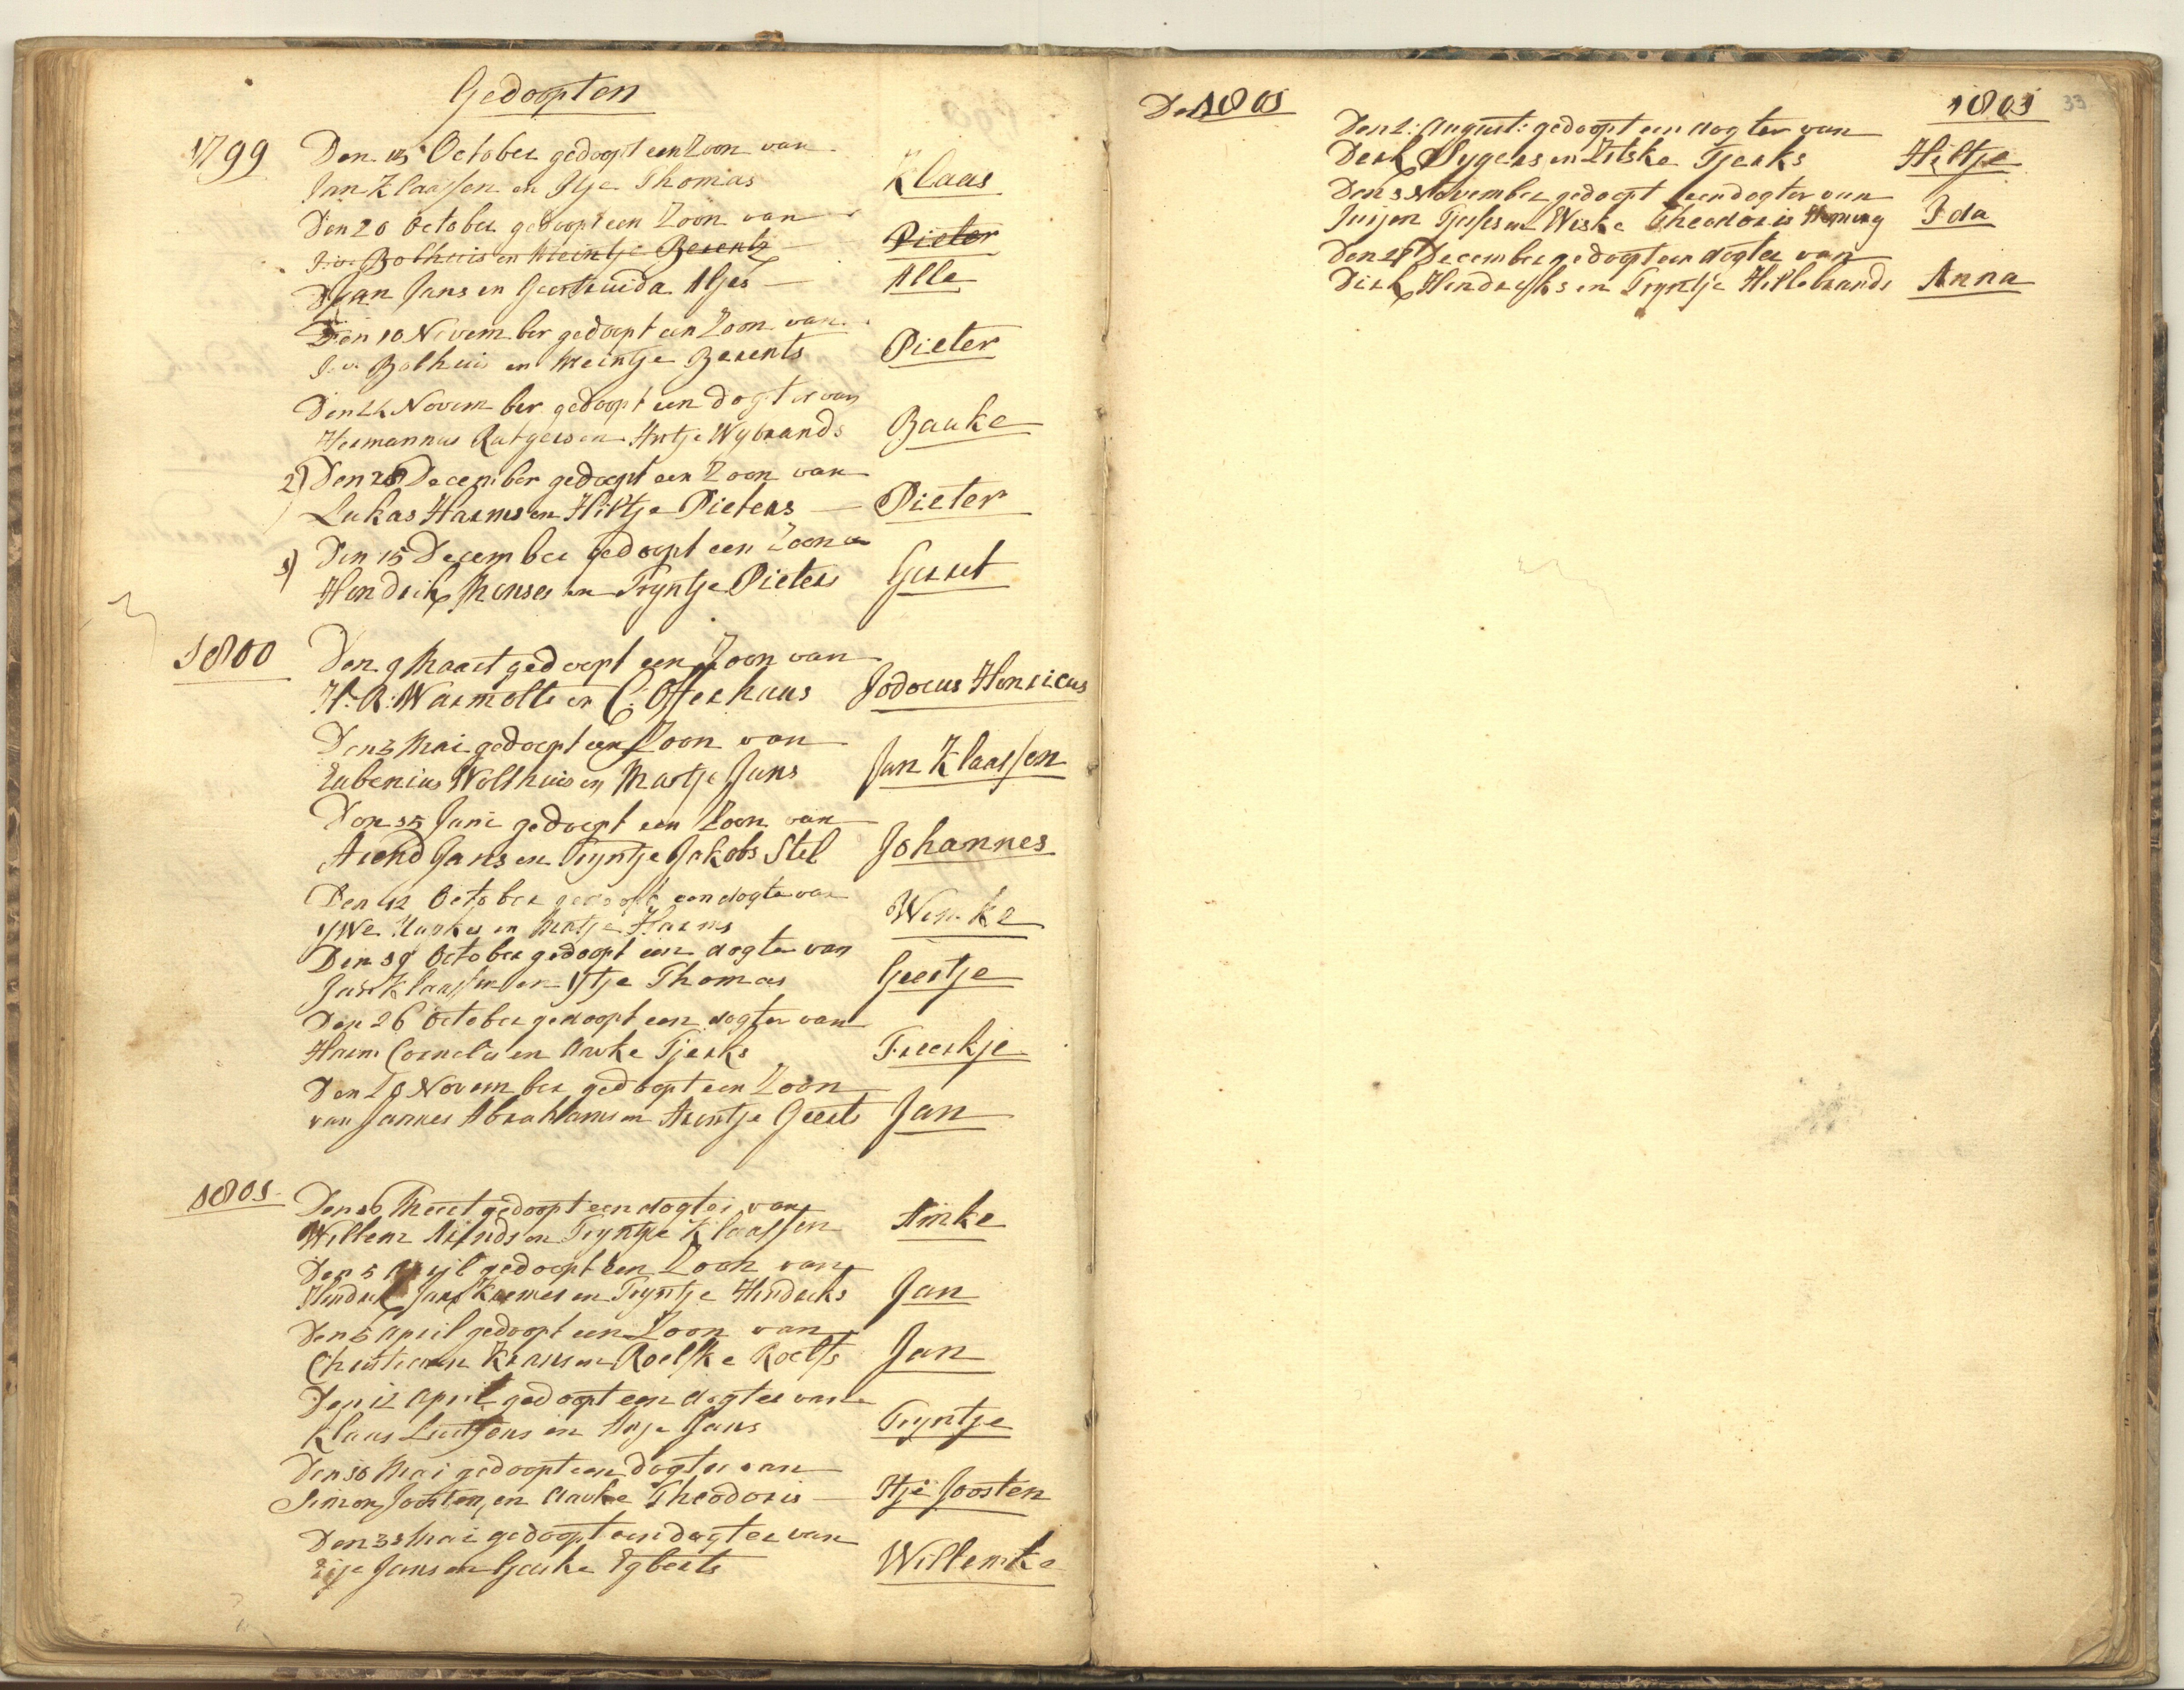 Gedoopten
1799
Den 13 October gedoopt een Zoon van
Jan Klaassen en Itje Thomas
Klaas
Den 20 October gedoopt een Zoon van
J. v. Bolhuis en Meintje Berents
Pieter
Jan Jans en Geertruida Aljes
Alle
Den 10 November gedoopt een Zoon van
J. v. Bolhuis en Meintje Berents
Pieter
Den 24 November gedoopt een dogter van
Hermannus Rutgers en Antje Wybrands
Bauke
2) Den December gedoopt een Zoon van
Lukas Harms en Hiltje Pieters
Pieter
1) Den 15 December gedoopt een Zoon v
Hendrik Menses en Tryntje Pieters
Gerrit
1800
Den 9 Maart gedoopt een Zoon van
H. R. Warmolts en C. Offerhaus
Jodocus Henricus
Den 3 Mai gedoopt een Zoon van
Eubenius Wolthuis en Martje Jans
Jan Klaassen
Den 15 Juni gedoopt een Zoon van
Arend Jans en Tryntje Jakobs Stel
Johannes
Den 12 October gedoopt een dogter van
en Martje Harms
Wemke
Den 19 October gedoopt een dogter van
Jan Klaassen en Ytje Thomas
Geertje
Den 26 October gedoopt een dogter van
Harm Cornelis en Auke Tjerks
Freerkje
Den November gedoopt een Zoon
van Jannes Abrahams en Arentje Geerts
Jan
1801
Den 16 Meert gedoopt een dogter van
Willem Arends en Tryntje Klaassen
Amke
Den 5 April gedoopt een Zoon van
Hindrik Jans Kremer en Tryntje Hindriks
Jan
Den 5 April gedoopt een Zoon van
Christiaan Krans en Roelfke Roelfs
Jan
Den 12 April gedoopt een dogter van
Klaas Luitjens en Anje Jans
Tryntje
Den 10 Mai gedoopt een Dogter van
Simon Joosten en Aauke Theodoris
Itje Joosten
Den 31 Mai gedoopt een dogter van
Eije Jans en Geeske Egberts
Willemke
De 1801
1801
33
Den 2. August. gedoopt een dogter van
Derk Sygers en Zitske Tjerks
Hiltje
Den 3 November gedoopt een dogter van
Jurjen Tjesses en Weske Theodoris
Ida
Den 27 December gedoopt een dogter van
Dirk Hendriks en Tryntje Hillebrands
Anna